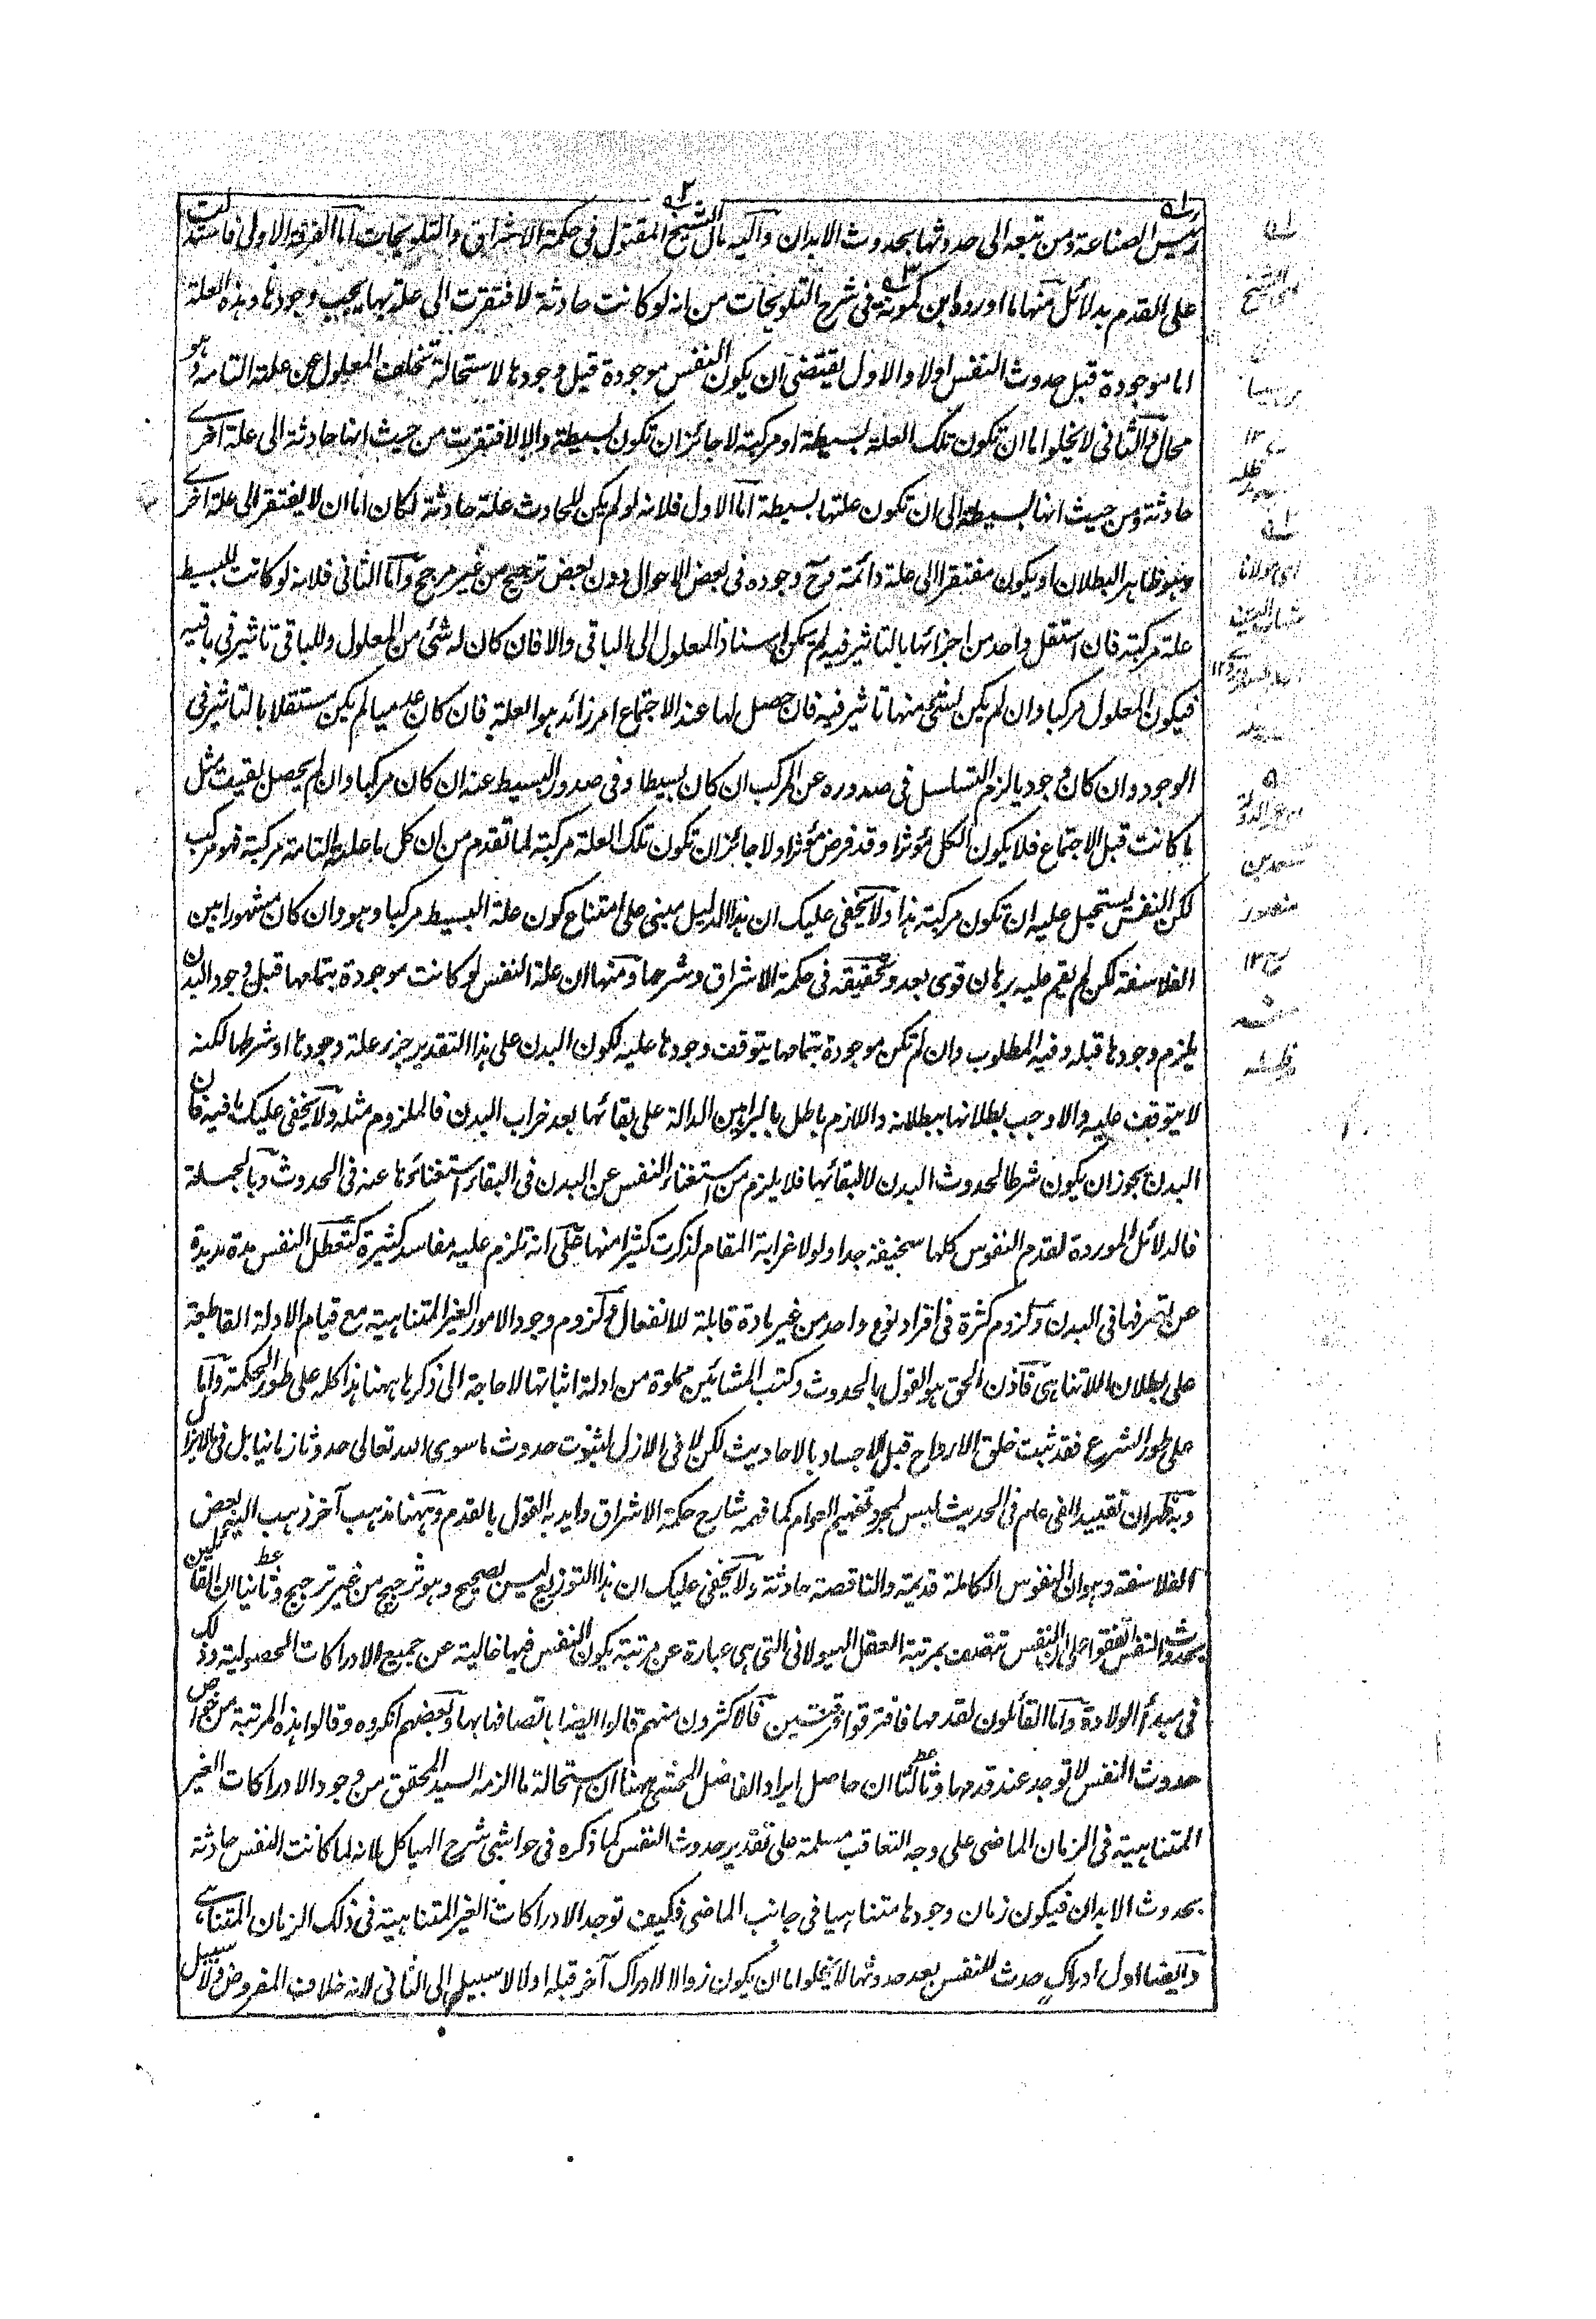 رئيس الصناعة ومن تبعه الى حدوثها بحدوث الابدان واليه مال الشيخ المقتول فى حكمة الاشراق والتلويحات اما الفرقة الاولى فاستدلت
على القدم بدلائل منها ما اورده ابن كمونة فى شرح التلويحات من انه لو كانت حادثة لافتقرت الى علة بها يجب وجودها وهذه العلة
اما موجودة قبل حدوث النفس اولا والاول يقتضى ان يكون النفس موجودة قبل وجودها لاستحالة تخلف المعلول عن علته التامة وهو
محال والثانى لا يخلوا اما ان تكون تلك العلة بسيطة او مركبة لا جائز ان تكون بسيطة والا لافتقرت من حيث انها حادثة الى علة اخرى
حادثة ومن حيث انها بسيطة الى ان تكون علتها بسيطة اما الاول فلانه لو لم يكن للحادث علة حادثة لكان اما ان لا يفتقر الى علة اخرى
وهو ظاهر البطلان او يكون مفتقرا الى علة دائمة وح وجوده فى بعض الاحوال دون بعض ترجيح من غير مرجح واما الثانى فلانه لو كانت للبسيط
علة مركبة فان استقل واحد من اجزائها بالتاثير فيه لم يمكن استناد المعلول الى الباقى والا فان كان له شئ من المعلول وللباقى تاثير فى باقيه
فيكون المعلول مركبا وان لم يكن لشئ منها تاثير فيه فان حصل لها عند الاجتماع امر زائد هو العلة فان كان عدميا لم يكن مستقلا بالتاثير فى
الوجود وان كان وجوديا لزم التسلسل فى صدوره عن المركب ان كان بسيطا وفى صدور البسيط عنه ان كان مركبا وان لم يحصل بقيت مثل
ما كانت قبل الاجتماع فلا يكون الكل مؤثرا وقد فرض مؤثرا ولا جائز ان تكون تلك العلة مركبة لما تقدم من ان كل ما علته التامة مركبة فهو مركب
لكن النفس يستحيل عليه ان تكون مركبة هذا ولا يخفى عليك ان هذا الدليل مبنى على امتناع كون علة البسيط مركبا وهو وان كان مشهورا بين
الفلاسفة لكن لم يقم عليه برهان قوى بعد وتحقيقه فى حكمة الاشراق وشرحها ومنها ان علة النفس لو كانت موجودة بتمامها قبل وجود البدن
يلزم وجودها قبله وفيه المطلوب وان لم تكن موجودة بتمامها يتوقف وجودها عليه لكون البدن على هذا التقدير جزء علة وجودها او شرطها لكنه
لا يتوقف عليه والا وجب بطلانها ببطلانه واللازم باطل بالبراهين الدالة على بقائها بعد خراب البدن فالملزوم مثله ولا يخفى عليك ما فيه فان
البدن يجوز ان يكون شرطا لحدوث البدن لا لبقائها فلا يلزم من استغناء النفس عن البدن فى البقاء استغناؤها عنه فى الحدوث وبالجملة
فالدلائل الموردة لقدم النفوس كلها سخيفة جدا ولولا غرابة المقام لذكرت كثيرا منها على انه تلزم عليه مفاسد كثيرة كتعطل النفس مدة مديدة
عن تصرفها فى البدن ولزوم كثرة فى افراد نوع واحد من غير مادة قابلة للانفعال ولزوم وجود الامور الغير المتناهية مع قيام الادلة القاطعة
على بطلان اللاتناهى فاذن الحق هو القول بالحدوث وكتب المشائين مملوة من ادلة اثباتها لا حاجة الى ذكرها ههنا هذا كله على طور الحكمة واما
على طور الشرع فقد ثبت خلق الارواح قبل الاجساد بالاحاديث لكن لا فى الازل لثبوت حدوث ما سوى الله تعالى حدوثا زمانيا بل فى لايزال
وبه ظهر ان تقييد الفى عام فى الحديث ليس لمجرد تفهيم العوام كما فهمه شارح حكمة الاشراق وايد به القول بالقدم وههنا مذهب آخر ذهب اليه بعض
الفلاسفة وهو ان النفوس الكاملة قديمة والناقصة حادثة ولا يخفى عليك ان هذا التوزيع ليس بصحيح وهو ترجيح من غير ترجيح وثانيا ان القائلين
بحدوث النفس اتفقوا على ان النفس تتصف بمرتبة العقل الهيولانى التى هى عبارة عن مرتبة يكون النفس فيها خالية عن جميع الادراكات الحصولية وذلك
فى مبدأ الولادة واما القائلون بقدمها فافترقوا فرقتين فالاكثرون منهم قالوا ايضا باتصافها بها وبعضهم انكروه وقالوا هذه المرتبة من خواص
حدوث النفس لا توجد عند قدمها وثالثا ان حاصل ايراد الفاضل المحشى ههنا ان استحالة ما الزمه السيد المحقق من وجود الادراكات الغير
المتناهية فى الزمان الماضى على وجه التعاقب مسلمة على تقدير حدوث النفس كما ذكره فى حواشى شرح الهياكل لانه لما كانت النفس حادثة
بحدوث الابدان فيكون زمان وجودها متناهيا فى جانب الماضى فكيف توجد الادراكات الغير المتناهية فى ذلك الزمان المتناهى
وايضا اول ادراك حدث للنفس بعد حدوثها لا يخلوا اما ان يكون زوالا لادراك آخر قبله اولا لا سبيل الى الثانى لانه خلاف المفروض ولا سبيل
اى الشيخ
١٢
منه
ظله
اى مولانا
١٢
منصور
١٢
منه
ظله